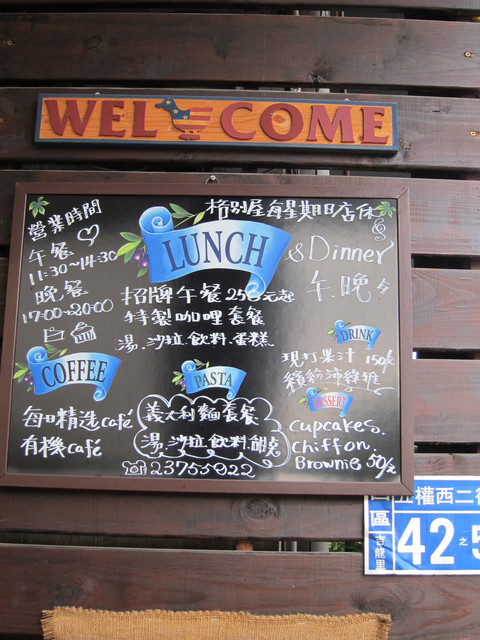 WELCOME
格別屋每星期日店休
營業時間
午餐
11:30~14:30
晚餐
17:00~20:00
LUNCH
& Dinner
午.晚餐
招牌午餐250元起
特製咖哩套餐
湯.沙拉.飲料.蛋糕
COFFEE
每日精选café
有機café
PASTA
義大利麵套餐
湯.沙拉.飲料.甜點
☏23755922
DRINK
現打果汁150元
繽紛沛綠雅
DESSERT
cupcakes.
chiffon.
Brownie 50/元
五權西二街
區
吉龍里
42之5